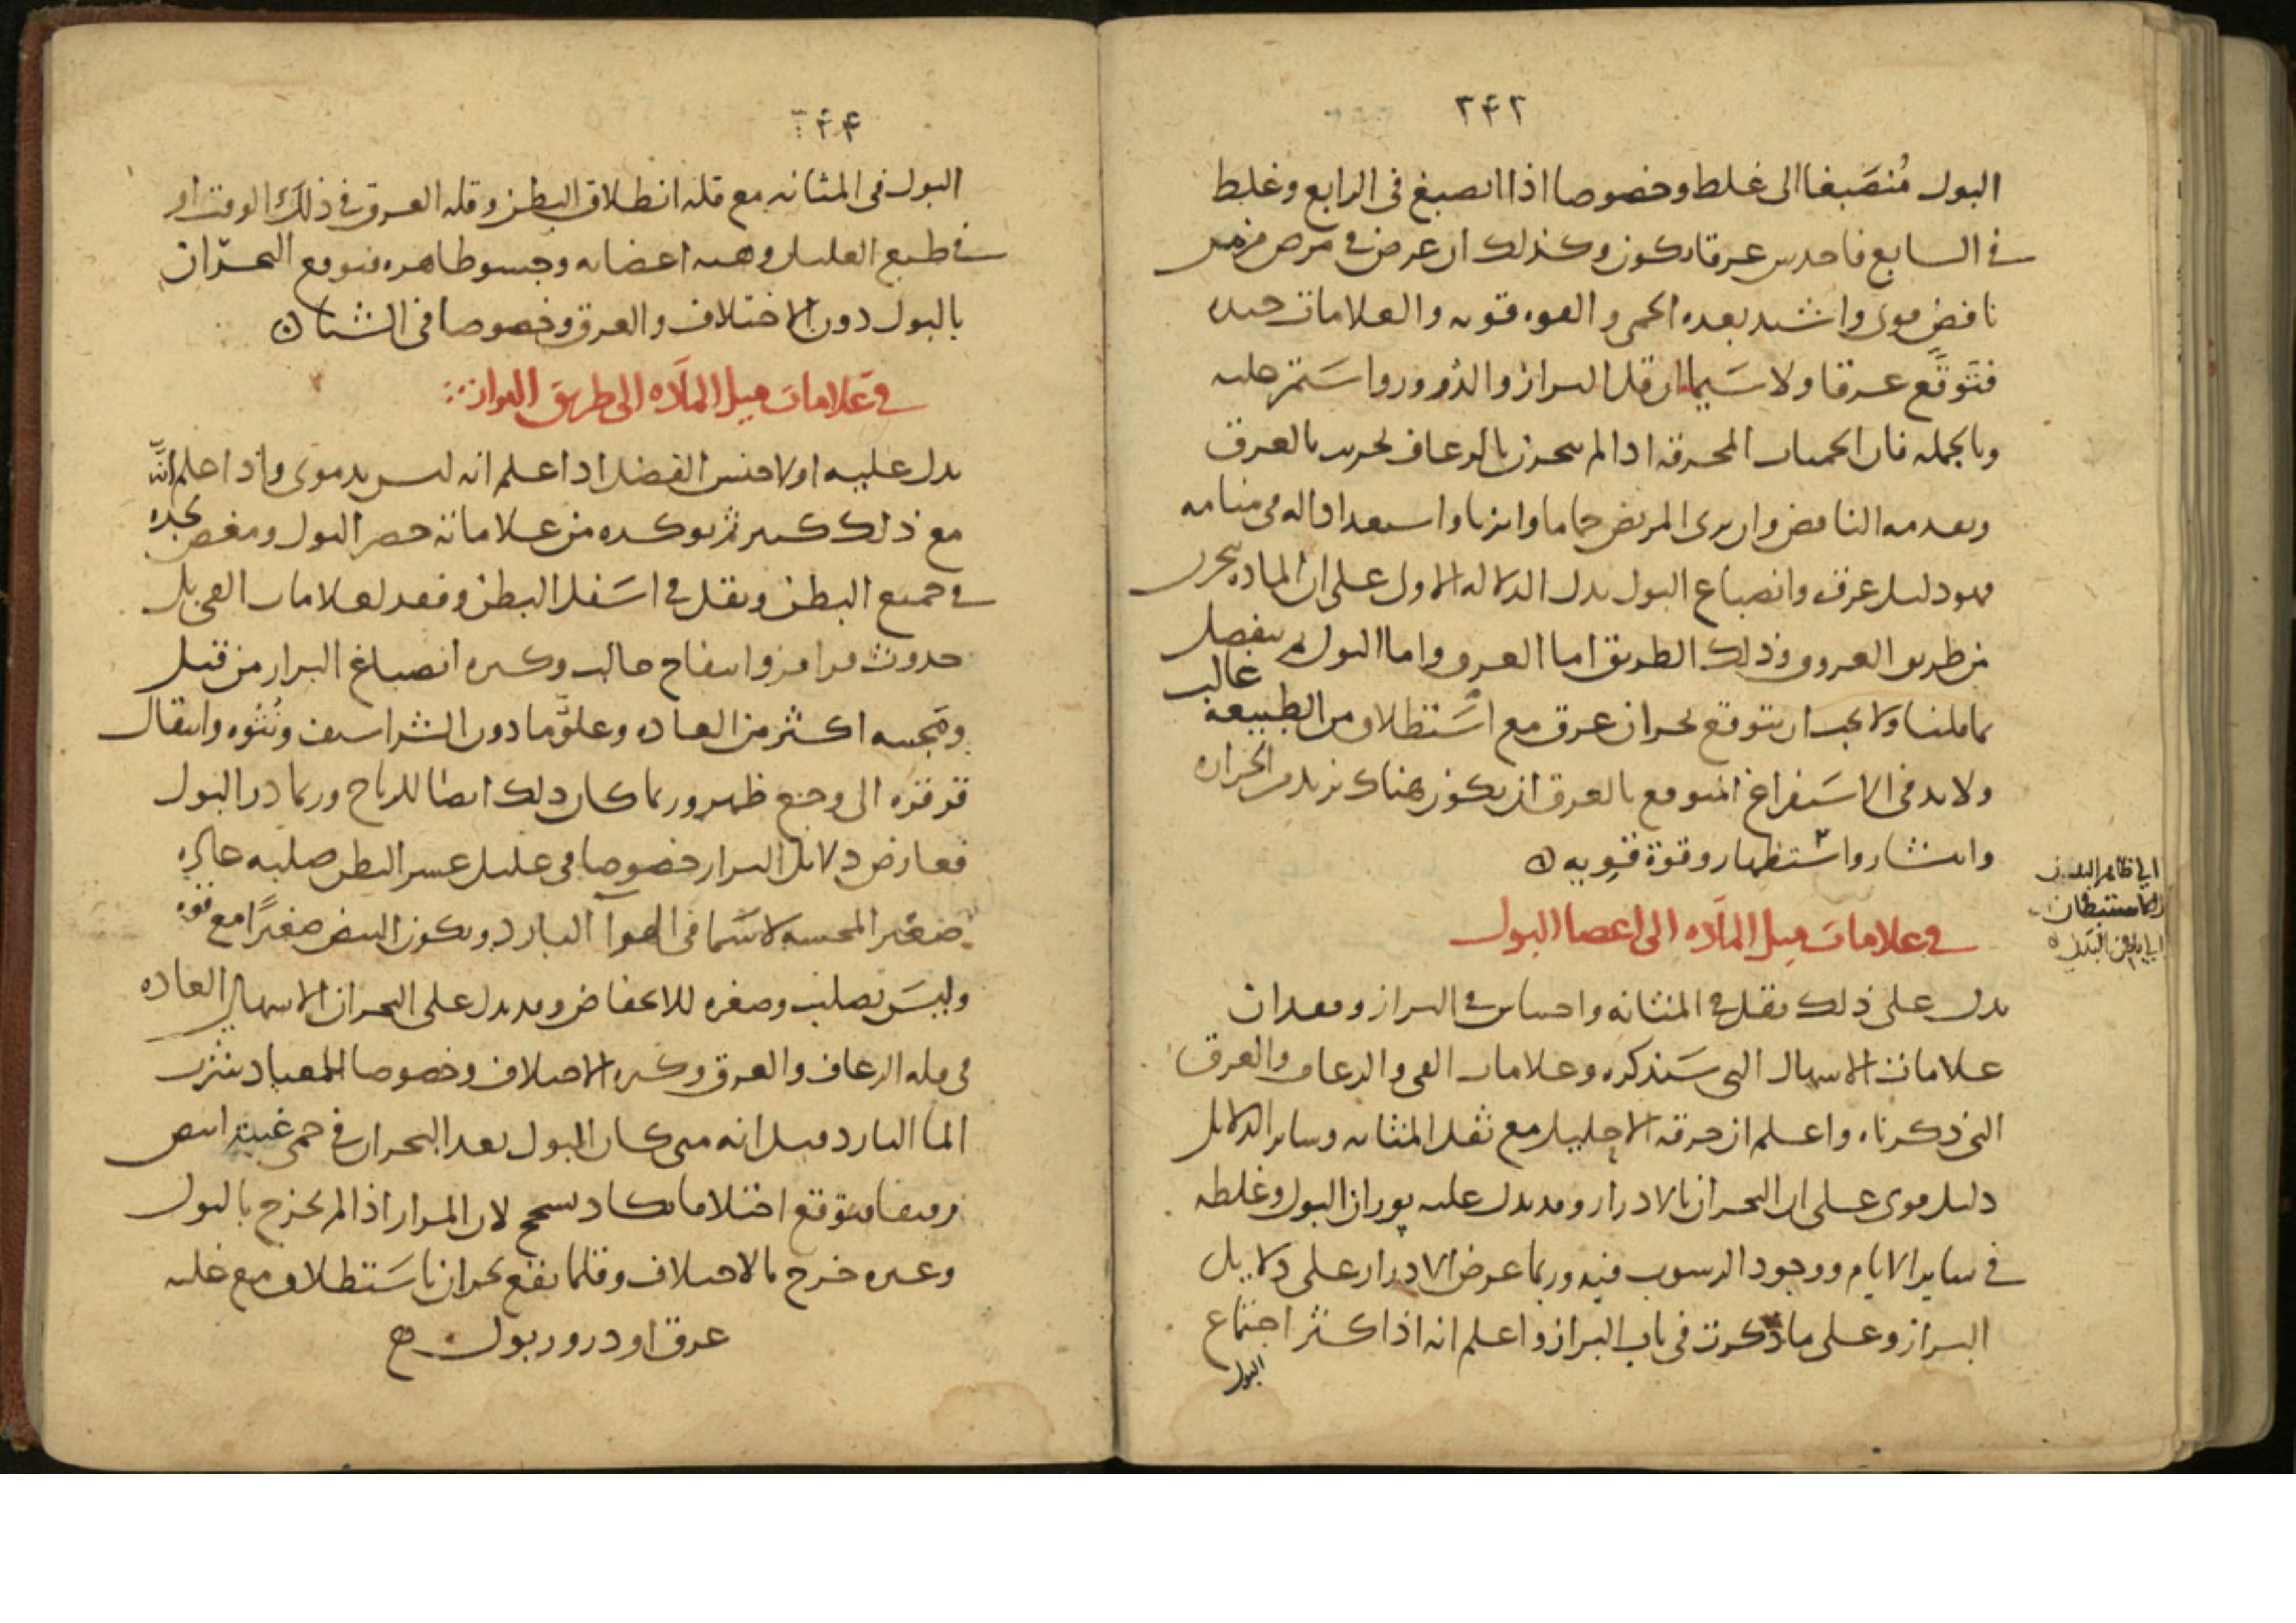 ٢٤٢
البول مُنصَبغا الى غلط وخصوصا اذا انصبغ فى الرابع وغلط
فى السابع فاحدس عرقا يكون وكذلك ان عرض فى مرض مزمن
نافض قوى واشتد بعده الحمى والقوه قويه والعلامات جيده
فتَوقَّع عرقا ولا سَيما ان قل البراز والدُرور واستمر عليه
وبالجمله فان الحميات المحرقه اذا لم تبحرن بالرعاف بحرنت بالعرق
ويعدمه النافض وان يرى المريض حماما وابزنا واستعدادا له فى منامه
فهو دليل عرق وانصباغ البول يدل الدلاله الاول على ان الماده تتحرك
من طريق العروق وذلك الطريق اما العرق واما البول لم ينفصل
بما قلنا ولا يجب ان يتوقع بحران عرق مع استطلاق من الطبيعه غالب
ولا بد فى الاستفراغ المتوقع بالعرق ان يكون هناك تزيد من الحراره
وانتشار واستظهار وقوة قويه
اى ظاهر البدن
فى علامات ميل الماده الى اعضا البول
يدل على ذلك ثقل فى المثانه واحتباس فى البراز وفقدان
علامات الاسهال التى سَنذكره وعلامات القى والرعاف والعرق
التى ذكرناه واعلم ان حرقه الاحليل مع ثقل المثانه وساير الدلايل
دليل قوى على ان البحران بالادرار وقد يدل عليه بوران البول وغلطه
فى ساير الايام ووجود الرسوب فيه وربما عرض الادرار على دلايل
البراز وعلى ما ذكرت فى باب البراز واعلم انه اذا كثر اجتماع
البول
٢٤٤
البول فى المثانه مع قله انطلاق البطن وقله العرق فى ذلك الوقت او
فى طبع العليل وهيه اعضايه وجسو ظاهره فتوقع البحران
بالبول دون الاختلاف والعرق وخصوصا فى الشتا
فى عَلامات ميل الماده الى طريق البراز
يدل عليه اولا جنس الفضل اذا علم انه ليس بدموى واذا علم انه
مع ذلك كثير ثم يوكده من علاماته حصر البول ومغص يجده
فى جميع البطن وثقل فى اسفل البطن وفقد لعلامات القى بل
حدوث قراقر وانتفاخ حالب وكثره انصباغ البراز من قبل
ومجيه اكثر من العاده وعلوّ ما دون الشراسيف ونُتُوه وانتقال
قرقره الى وجع ظهر وربما كان ذلك ايضا للرياح وربما در البول
فعارض دلايل البراز خصوصا فى عليل عسر البطن صلبه
صغير المجسه لا سَيما فى الهوآ البارد ويكون النبض صغيرًا مع قوه
وليسَ بصلب وصغره للانخفاض وقد يدل على البحران الاسهالى العاده
فى قله الرعاف والعرق وكثره الاختلاف وخصوصا المعتاد شرب
الما البارد قيل انه متى كان البول بعد البحران فى حمى غير ابيض
رقيقا فتوقع اختلافا يكاد يسحج لان المرار اذا لم يخرج بالبول
وغيره خرج بالاختلاف وقلما يقع بحران باستطلاق مع غلبه
عرق او درور بول